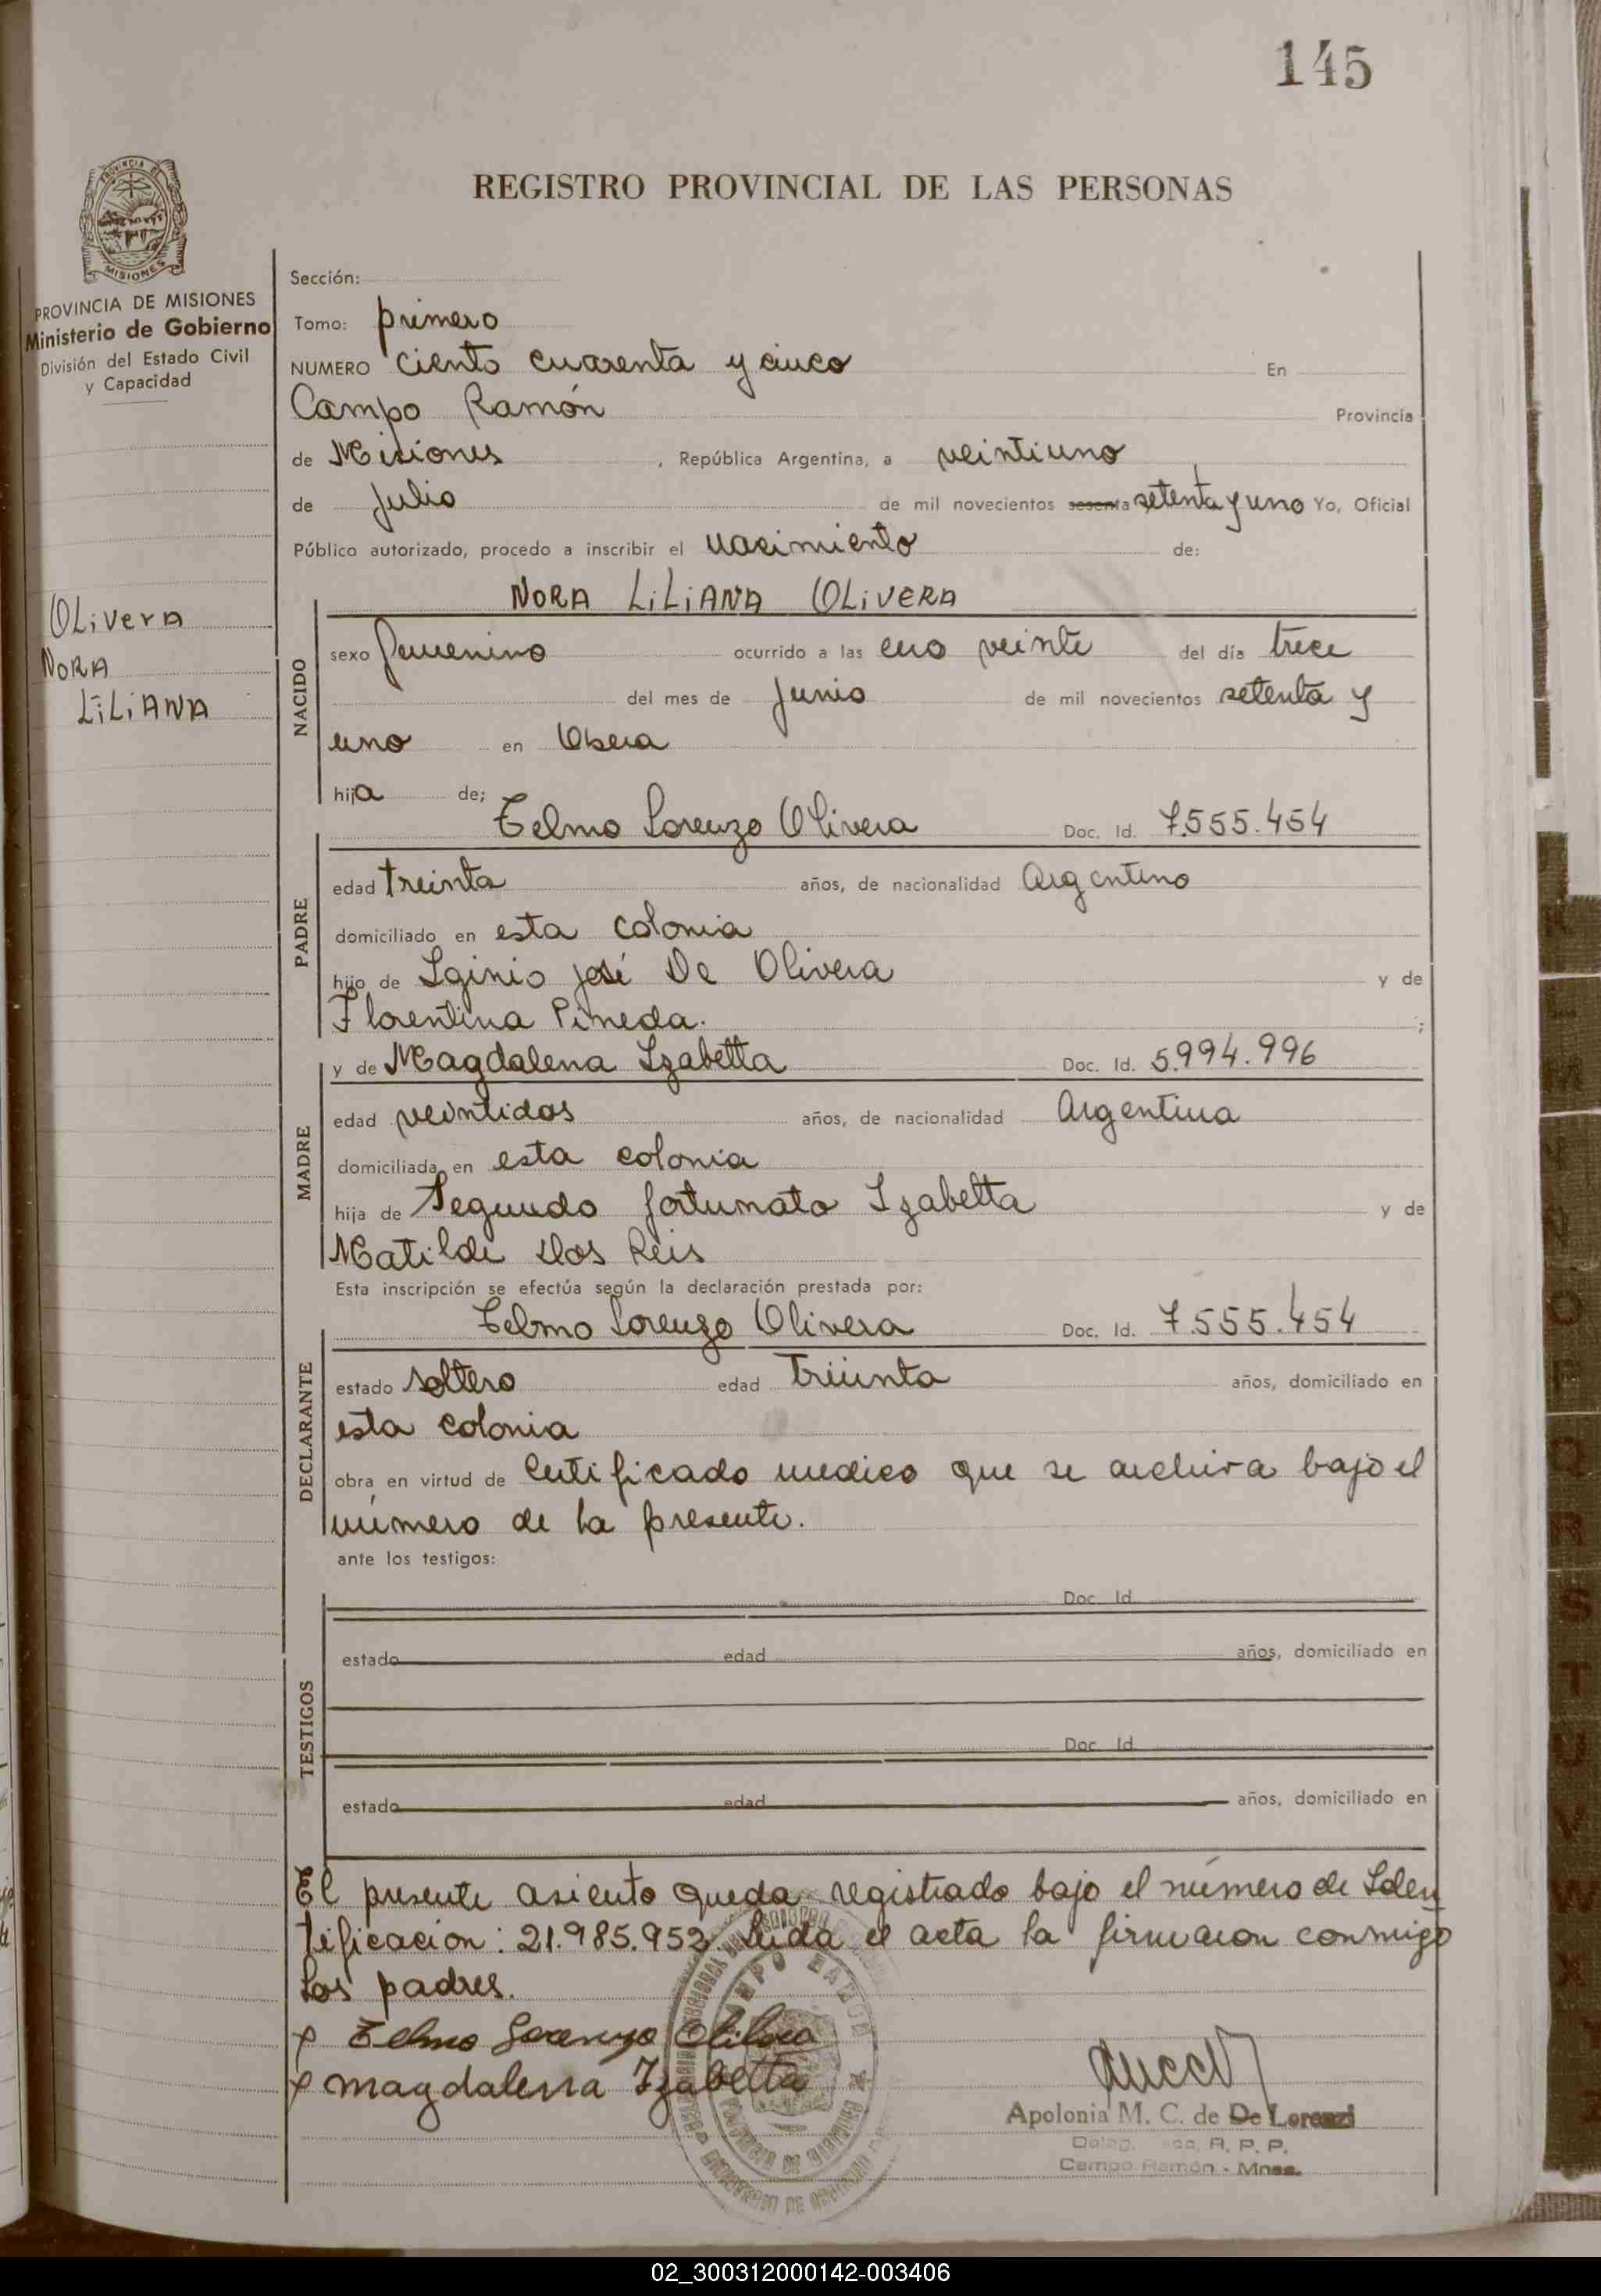 145
PROVINCIA DE
MISIONES
PROVINCIA DE MISIONES
Ministerio de Gobierno
División del Estado Civil
y Capacidad
Olivera
Nora
Liliana
REGISTRO PROVINCIAL DE LAS PERSONAS
Sección:
Tomo: primero
NUMERO Ciento cuarenta y cinco En
Campo Ramón Provincia
de Misiones , República Argentina, a veintiuno
de Julio de mil novecientos sesenta setenta y uno Yo, Oficial
Público autorizado, procedo a inscribir el nacimiento de:
NORA LILIANA OLIVERA
NACIDO
sexo femenino ocurrido a las cero veinte del día trece
del mes de Junio de mil novecientos setenta y
uno en Obera
hija de;
Telmo Lorenzo Olivera Doc. Id. 7.555.454
PADRE
edad treinta años, de nacionalidad Argentino
domiciliado en esta colonia
hijo de Iginio José De Olivera y de
Florentina Pineda. ;
y de Magdalena Izabetta Doc. Id. 5.994.996
MADRE
edad veintidos años, de nacionalidad Argentina
domiciliada en esta colonia
hija de Segundo fortunato Izabetta y de
Matilde Dos Reis
Esta inscripción se efectúa según la declaración prestada por:
Telmo Lorenzo Olivera Doc. Id. 7.555.454
DECLARANTE
estado soltero edad Treinta años, domiciliado en
esta colonia
obra en virtud de Certificado medico que se archiva bajo el
número de la presente.
ante los testigos:
TESTIGOS
Doc. Id.
estado edad años, domiciliado en
Doc. Id.
estado edad años, domiciliado en
El presente asiento queda registrado bajo el número de Iden
tificacion: 21.985.952 Leida el acta la firmaron conmigo
los padres.
x Telmo Lorenzo Olivera
x magdalena Izabetta
Apolonia M. C. de De Lorenzi
R. P. P.
Campo Ramón - Mnes.
02_300312000142-003406